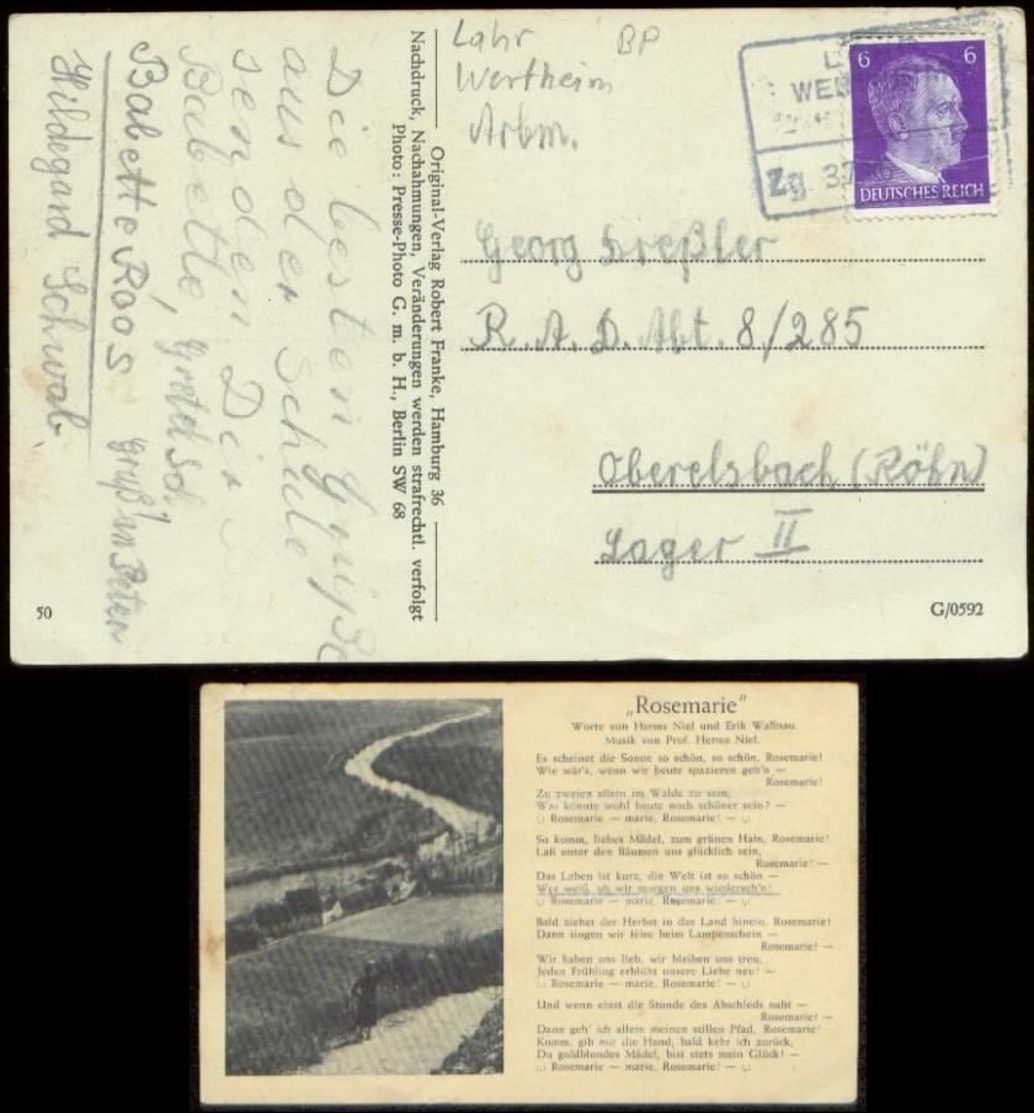 Lahr BP
Wertheim
WER
Zg 37
6 6
DEUTSCHES REICH
Georg Dreßler
R. A. D. Abt. 8/285
Oberelsbach (Röhn)
Lager II
G/0592
Original-Verlag Robert Franke, Hamburg 36
Nachdruck, Nachahmungen, Veränderungen werden strafrechtl. verfolgt
Photo: Presse-Photo G. m. b. H., Berlin SW 68
Die besten Grüße
aus der Schule
senden Dir
Babette, Gretel Sch.
Babette Roos
Hildegard Schwab.
50
„Rosemarie"
Worte von Herms Niel und Erik Wallnau.
Musik von Prof. Herms Niel.
Es scheinet die Sonne so schön, so schön, Rosemarie!
Wie wär's, wenn wir heute spazieren geh'n —
Rosemarie!
Zu zweien allein im Walde zu sein,
Was könnte wohl heute noch schöner sein? —
Rosemarie — marie, Rosemarie! —
So komm, liebes Mädel, zum grünen Hain, Rosemarie!
Laß unter den Bäumen uns glücklich sein,
Rosemarie! —
Das Leben ist kurz, die Welt ist so schön —
Wer weiß, ob wir morgen uns wiederseh'n!
Rosemarie — marie, Rosemarie! —
Bald ziehet der Herbst in das Land hinein, Rosemarie!
Dann singen wir leise beim Lampenschein —
Rosemarie! —
Wir haben uns lieb, wir bleiben uns treu,
Jeden Frühling erblüht unsere Liebe neu! —
Rosemarie — marie, Rosemarie! —
Und wenn einst die Stunde des Abschieds naht —
Rosemarie! —
Dann geh' ich allein meinen stillen Pfad, Rosemarie!
Komm, gib mir die Hand, bald kehr ich zurück,
Du goldblondes Mädel, bist stets mein Glück! —
Rosemarie — marie, Rosemarie! —